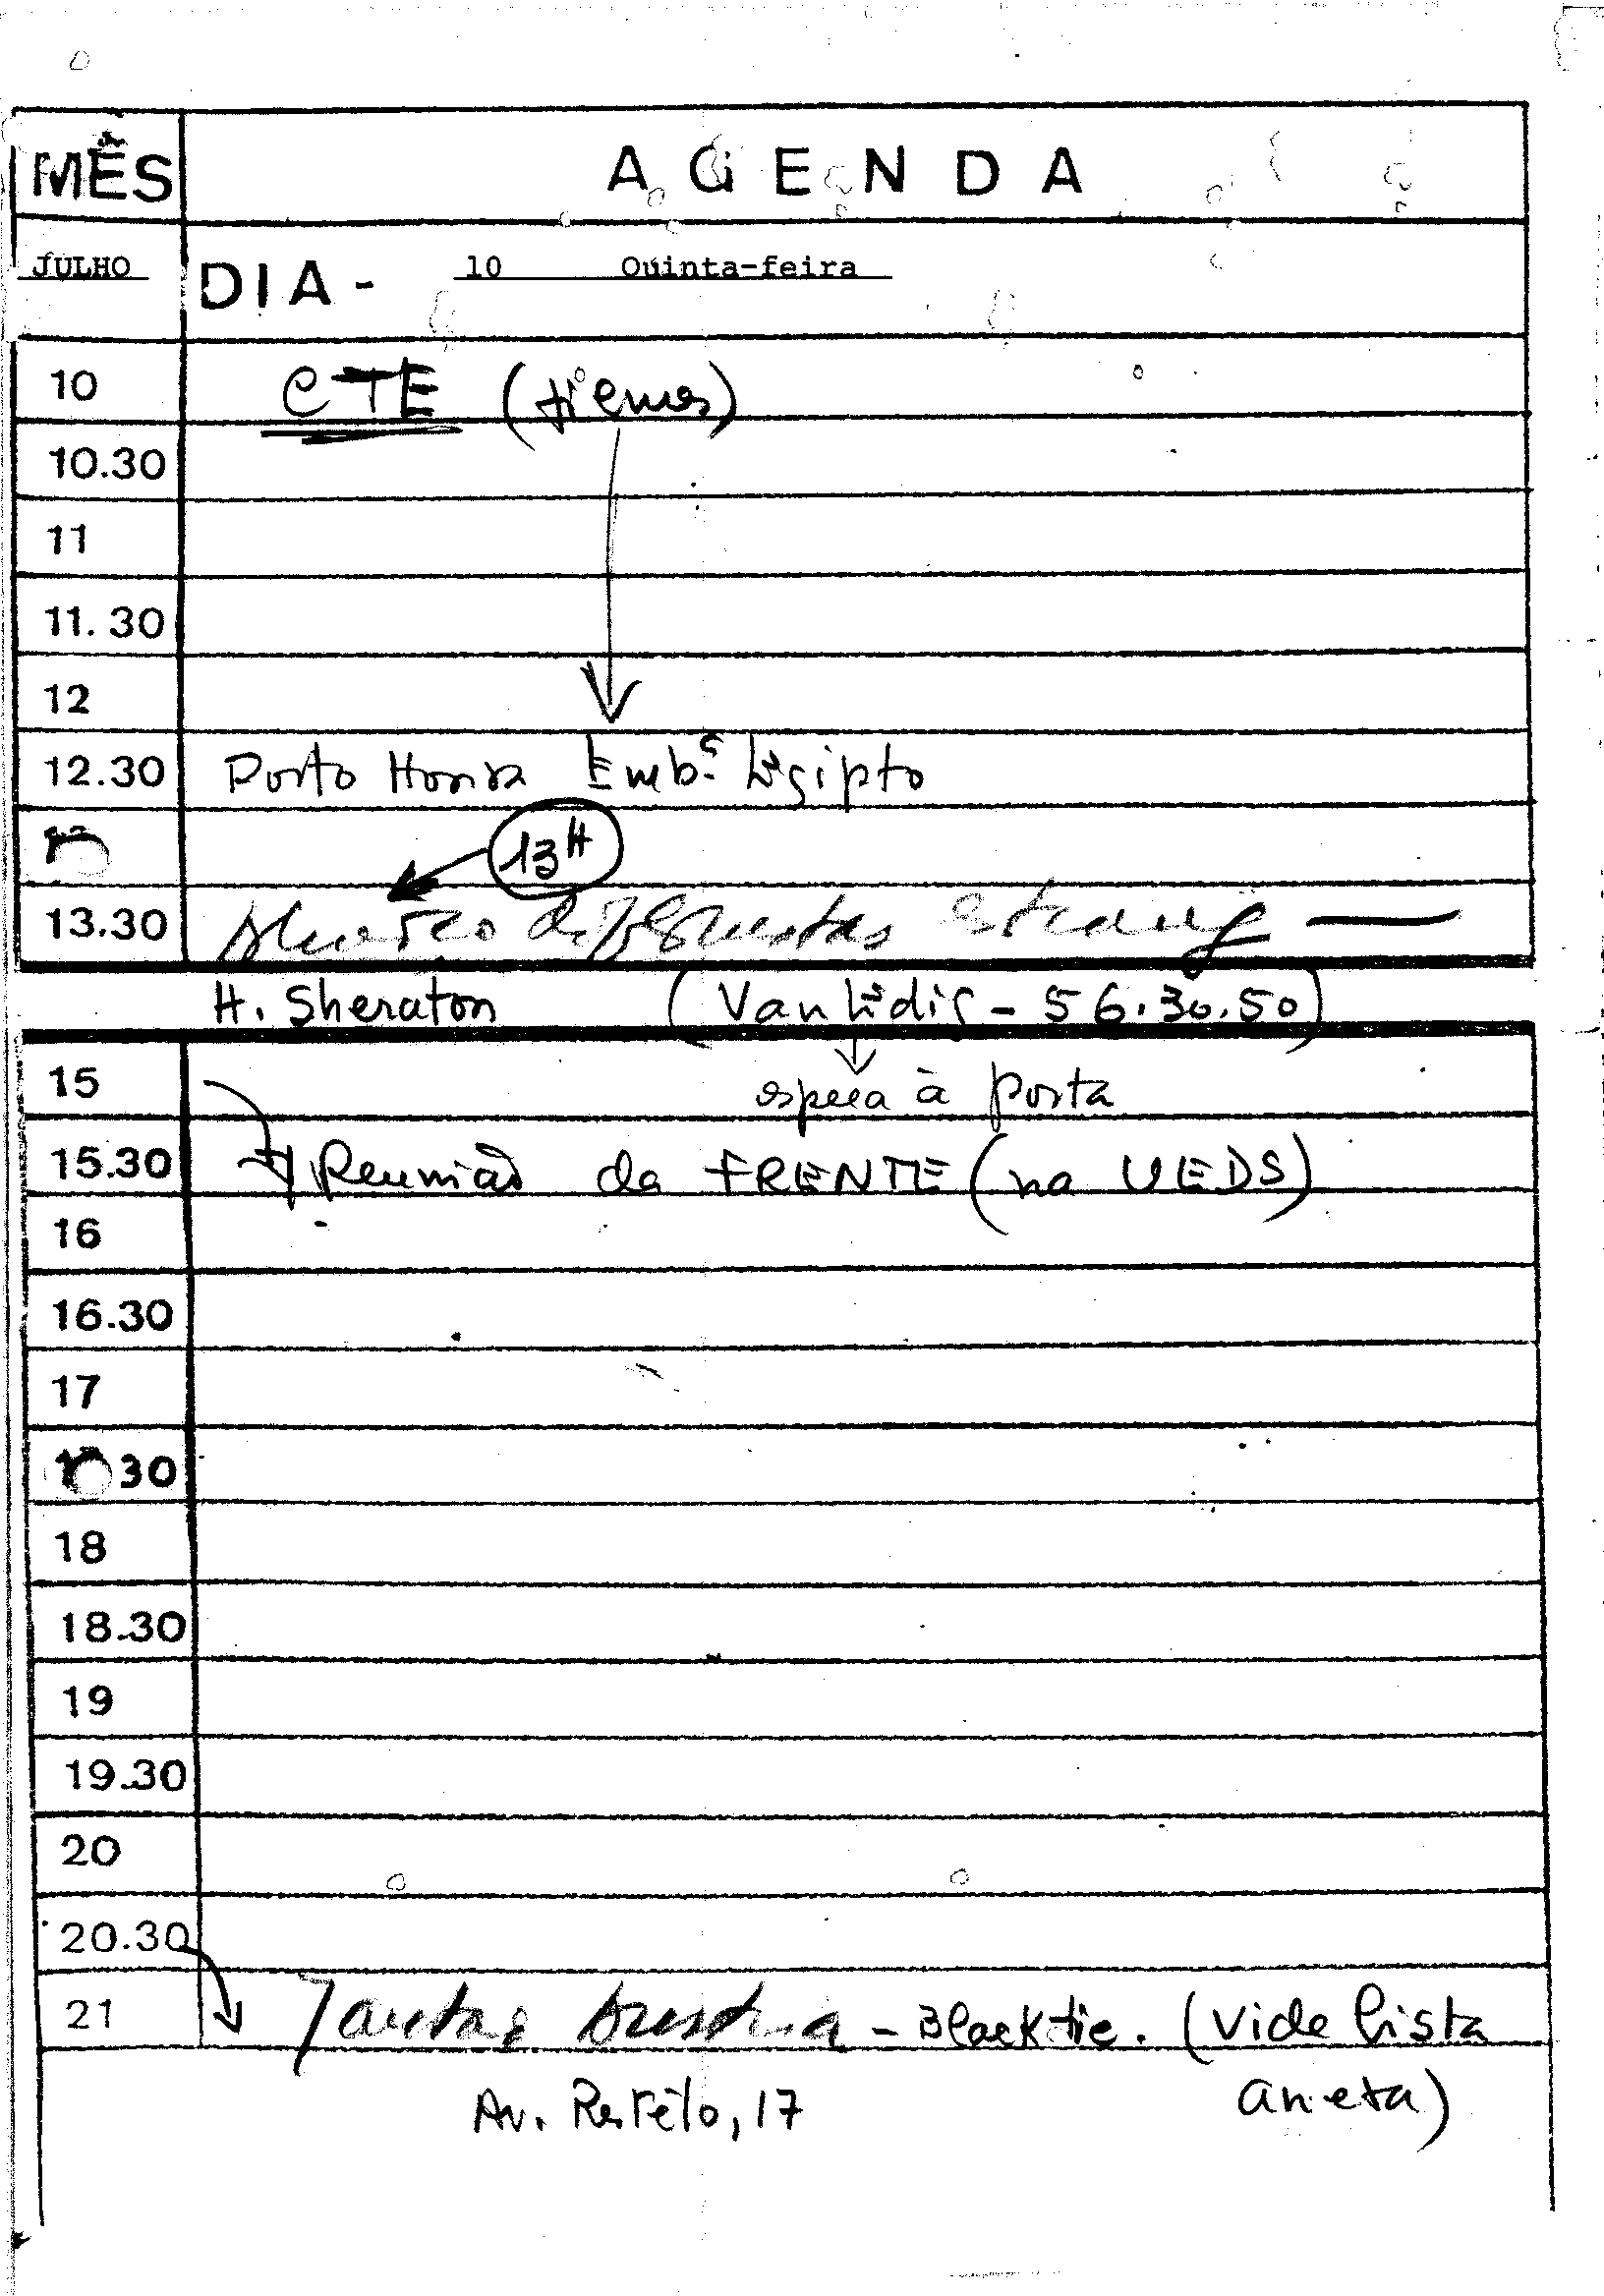 MÊS AGENDA
JULHO DIA - 10 Quinta-feira
10 CTE (
10.30
11
11.30
12
12.30 Porto Honra Emb. Egipto
13H
13.30 Almoço Jornalistas estrang
H. Sheraton (Van Edig - 56.30.50)
15 espera à porta
15.30 Reunião da FRENTE (na UEDS)
16
16.30
17
30
18
18.30
19
19.30
20
20.30
21 Jantar Austria - Blacktie. (Vide lista
Av. Restelo, 17 anexa)